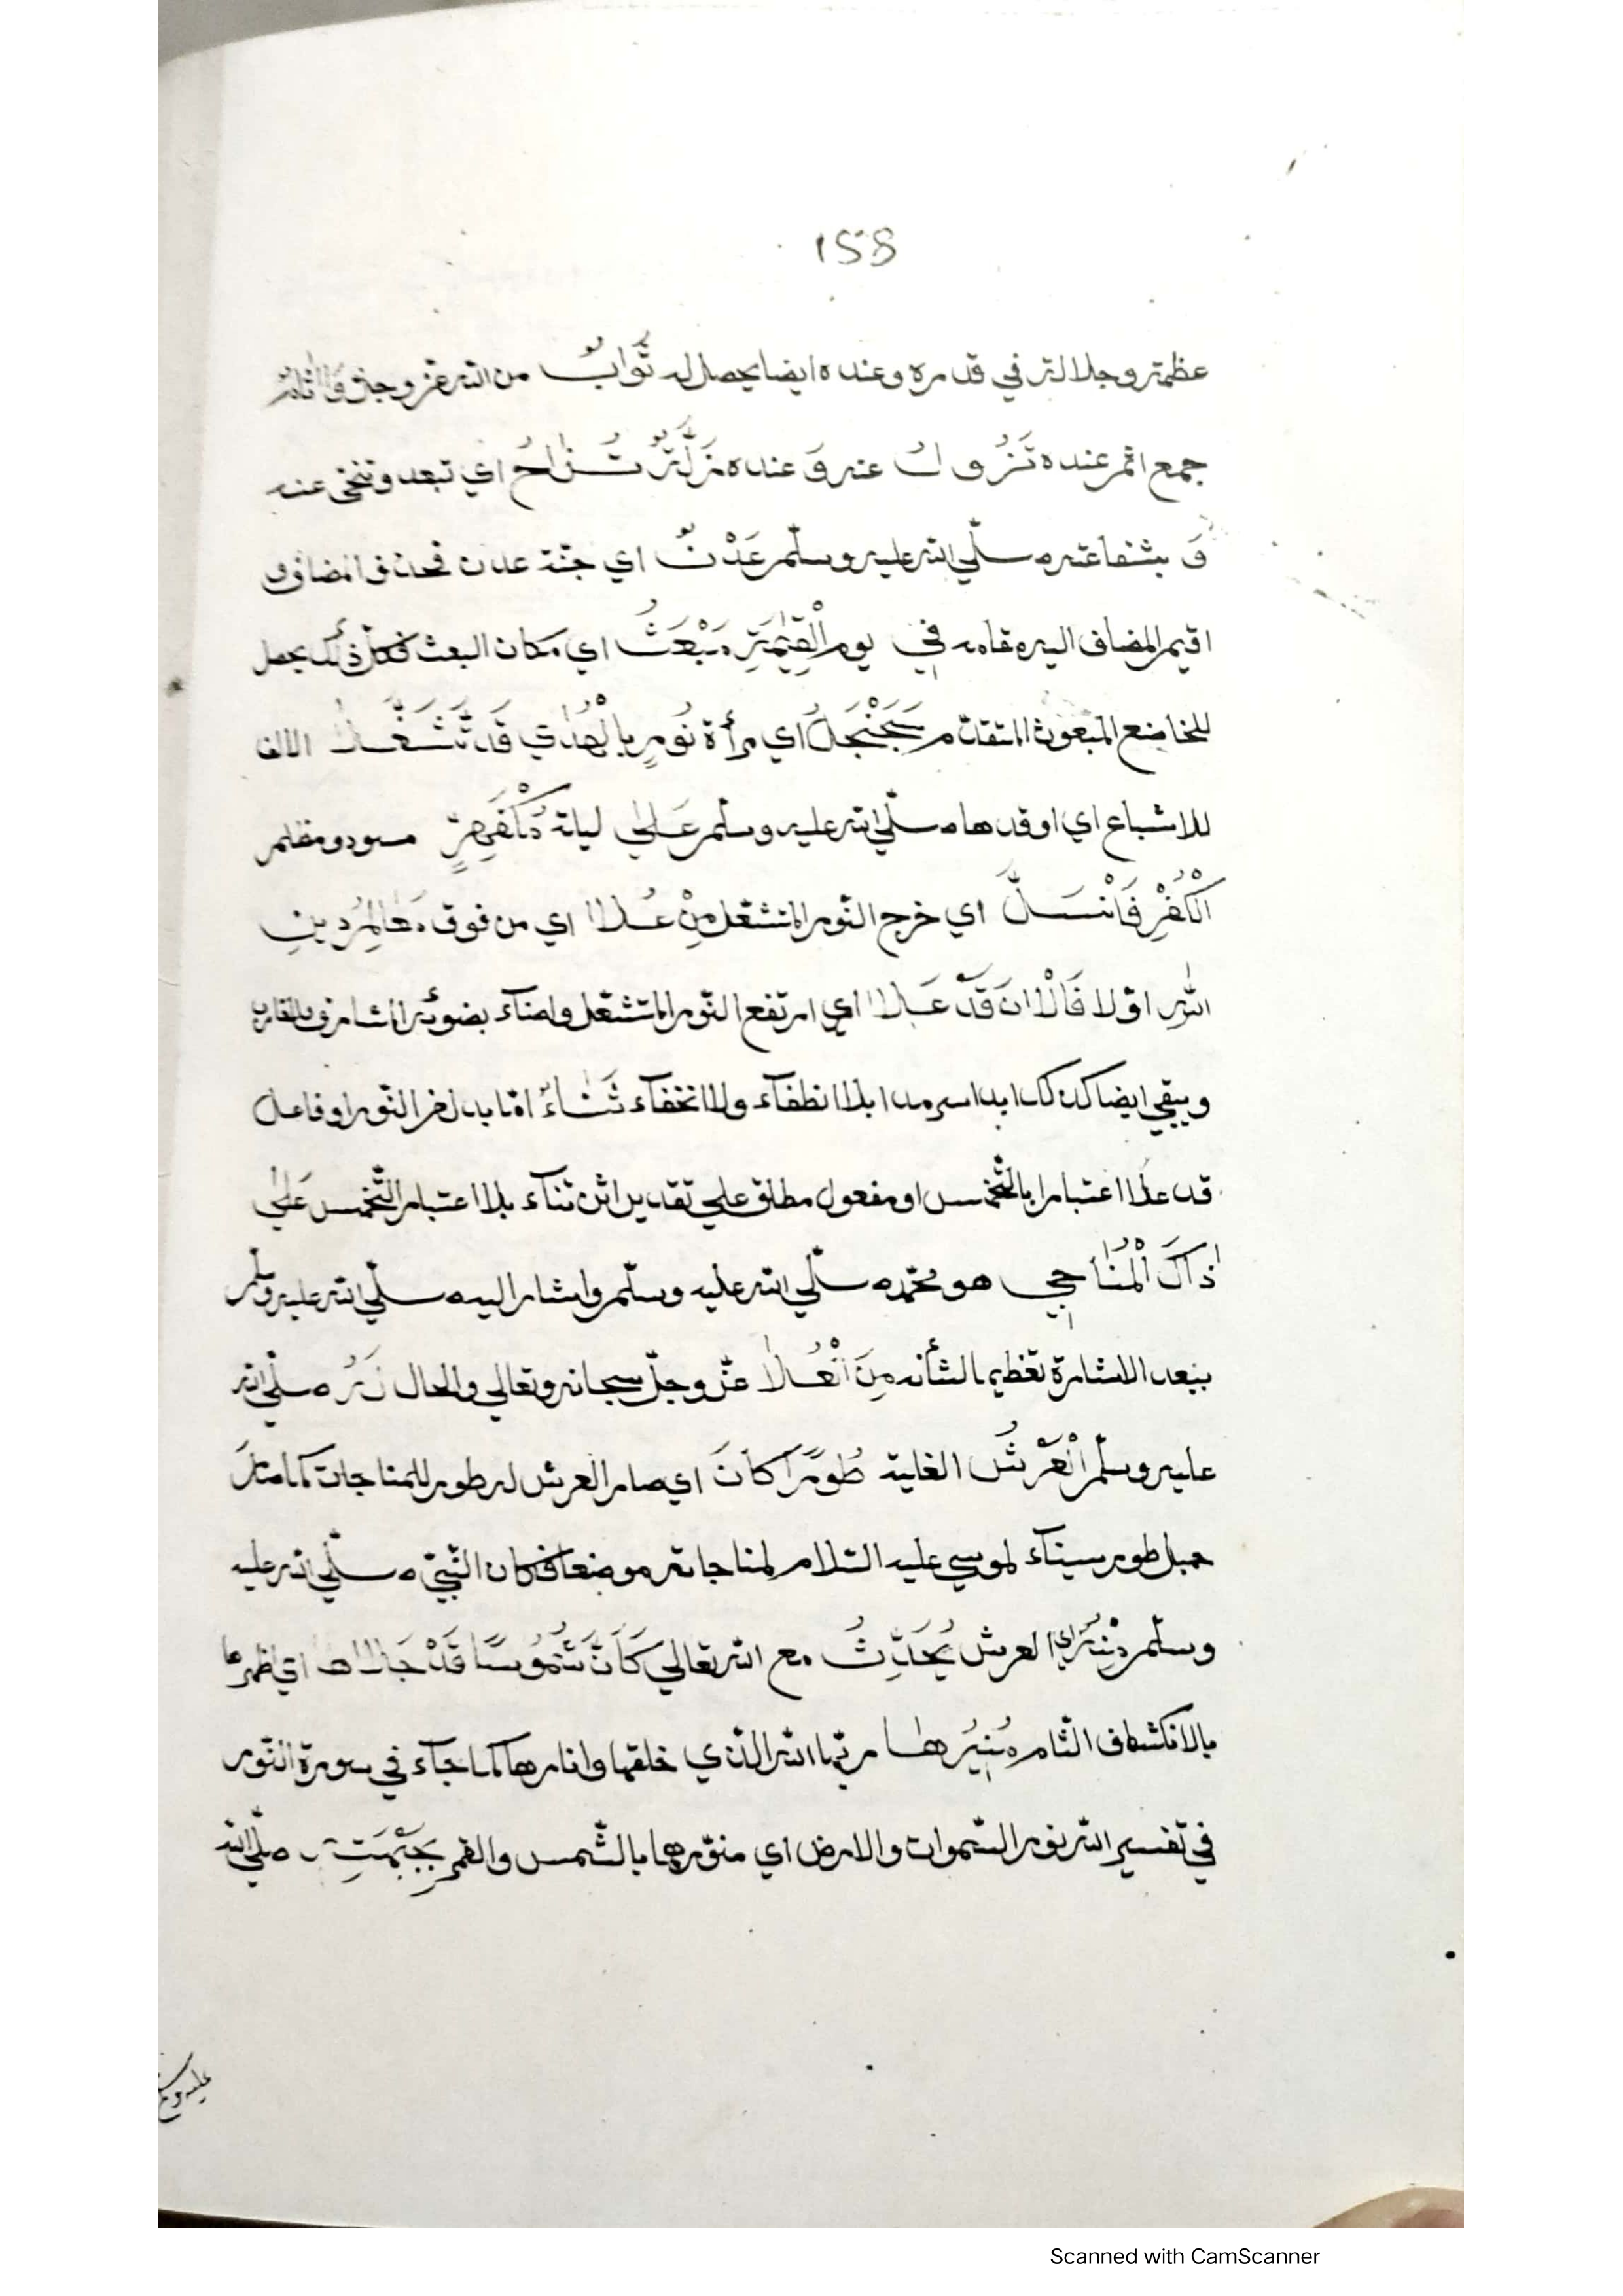 158
عظمته وجلالته في قدره وعنده ايضا يحصل له ثَوَابٌ من الله عز وجل وَاٰثَامٌ
جمع اثم عنده تَزُولُ عنه وَ عنده مَزَلَّةٌ تُزَاحُ اي تبعد وتنحى عنه
وَ بشفاعته صلّي الله عليه وسلّم عَدْنٌ اي جنّة عدن فحذف المضاف و
اقيم المضاف اليه مقامه في يوم الْقِيٰمَةِ مَبْعَثُ اي مكان البعث فكلّ ذلك يحصل
للخاضع المبعوث المتقدّم سَجَنْجَلُ اي مرأة نُورٍ بِالْهُدٰي قَدْ تَّشَعَّلَا الالف
للاشباع اي اوقدها صلّي الله عليه وسلّم عَلٰي ليلة مُكْفَهِرٍّ مسود ومظلم
الْكُفْرِ فَانْسَلَّ اي خرج النّور المتشعّل مِنْ عُلَا اي من فوق مَعَالِمِ دِينِ
اللهِ اوّلا فَالْاٰنَ قَدْ عَلَا اي ارتفع النّور المتشعّل واضآء بضوئه المشارق والمغارب
ويبقي ايضا كذلك ابدا سرمدا بلا انطفآء ولا انخفآء ثَنَاءٌ امّا بدل من النّور او فاعل
قد علا اعتبارا بالتّخميس او مفعول مطلق علي تقدير اثن ثنآء بلا اعتبار التّخميس عَلٰي
ذَاكَ الْمُنَاجِي هو محمّد صلّي الله عليه وسلّم واشار اليه صلّي الله عليه وسلّم
ببعد الاشارة تعظيما لشأنه مِنَ الْعُلَا عزّ وجلّ سبحانه وتعالي والحال لَهُ صلّي الله
عليه وسلّم الْعَرْشُ العلية طُورًا كَانَ اي صار العرش له طور للمناجات كما مثل
جبل طور سينآء لموسي عليه السّلام لمناجاته موضعا فكان النّبيّ صلّي الله عليه
وسلّم مِنْهُ اي العرش يُحَدِّثُ مع الله تعالي كَأَنَّ شُمُوسًا قَدْ جَلَاهَا اي اظهرها
بالانكشاف التّام مُنِيرُهَا ربّها الله الّذي خلقها وانارها كما جآء في سورة النّور
في تفسير الله نور السّموات والارض اي منوّرهما بالشّمس والقمر صلّي الله
عليه وسلّم
Scanned with CamScanner